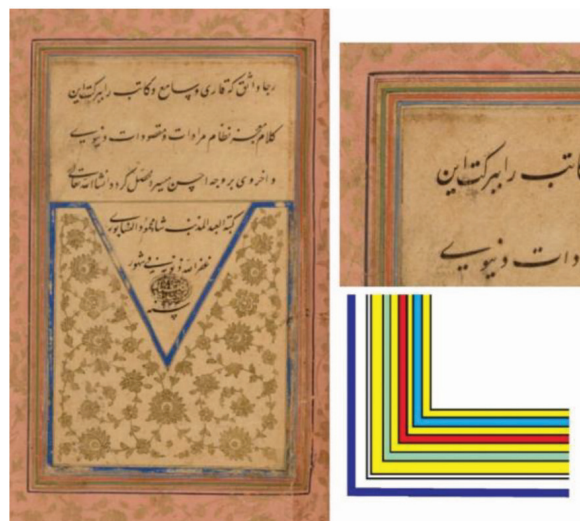 رجا واثق که قاری و سامع و کاتب را ببرکت این
کلام معجز نظام مرادات و مقصودات دنیوی
و اخروی بر وجه احسن میسر و محصل گردد انشاالله تعالی
کتبه العبد المذنب شاه محمود النیشابوری
غفر الله ذنوبه و
کاتب را ببرکت این
دات دنیوی